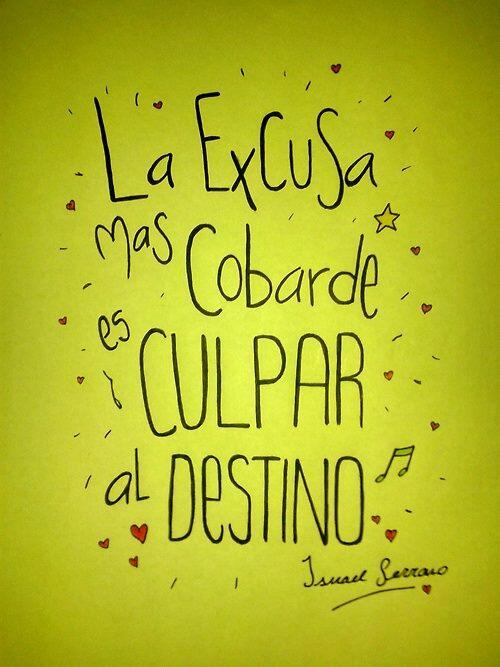 La ExCuSa
mas Cobarde
es CULPAR
al DeSTINO
Ismael Serrano